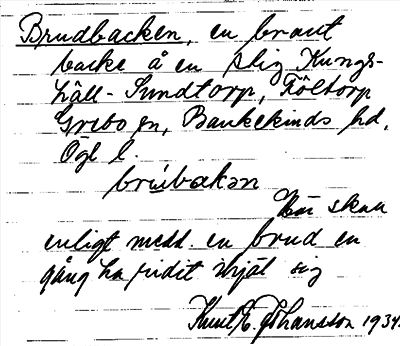 Brudbacken, en brant
backe å en stig Kungs-
håll-Sundtorp, Föltorp
Grebo sn, Bankekinds hd,
Ögl l.
brúbakən
Här skall
enligt medd. en brud en
gång ha ridit ihjäl sig
Knut E. Johansson 1934.